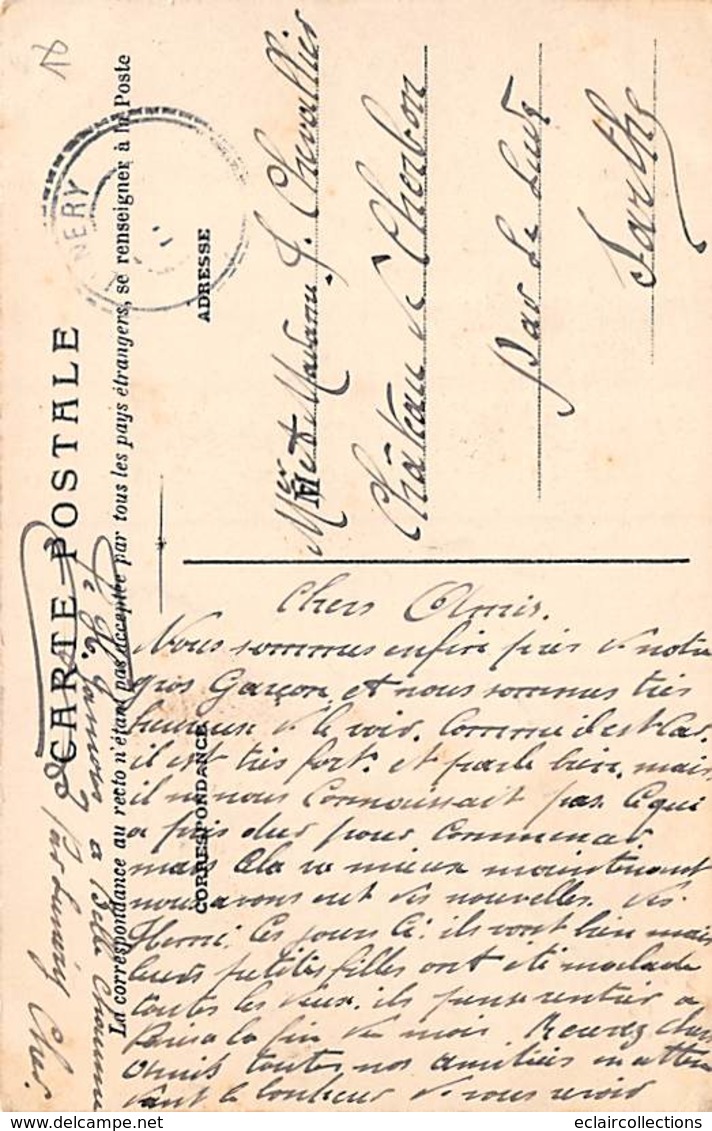 18
CARTE POSTALE
La correspondance au recto n'étant pas acceptée par tous les pays étrangers, se renseigner à la Poste
NERY
CORRESPONDANCE
ADRESSE
M
Mr et Madame J. Chevallier
Château de Cherbon
par Le Lude
Sarthe
Chers Amis.
Nous sommes enfin près de notre
gros Garçon et nous sommes très
heureux de le voir. Comme il est
il est très fort. et parle bien. mais
il ne nous Connaissait pas Ce qui
a dur pour Commencer
mais Cela va mieux maintenant
nous avons eut des nouvelles. des
Henri Ces jours Ci. ils vont bien mais
leurs petites filles ont été malade
toutes les deux. ils pense rentrer a
Paris a la fin du mois. Recevez chers
Amis toutes nos amitiés en atten
dant le bonheur de vous revoir
a Belle Chaume
par Cher.
eclaircollections